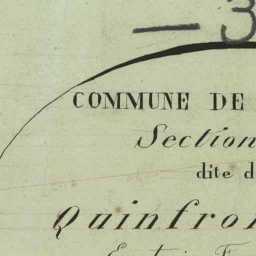 — 3
COMMUNE DE
Section
dite d
Quinfro